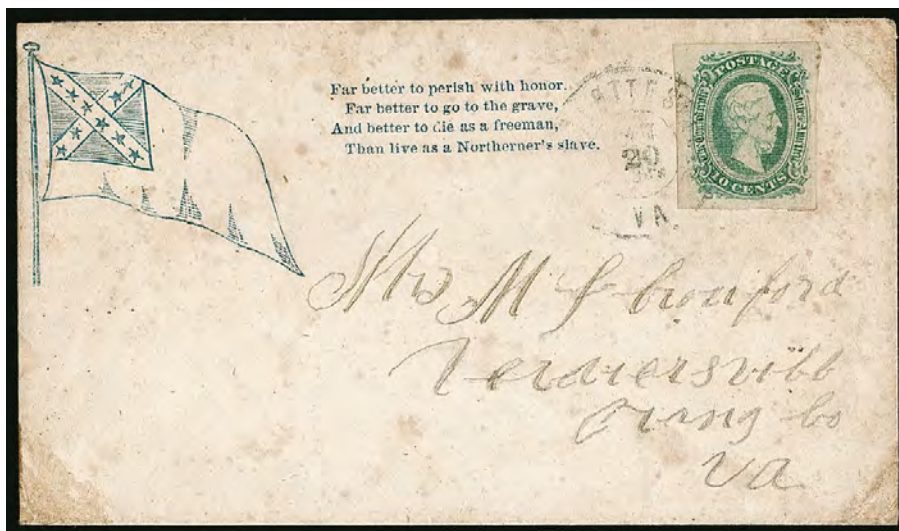 Far better to perish with honor.
Far better to go to the grave,
And better to die as a freeman,
Than live as a Northerner's slave.
20
VA.
POSTAGE
10 CENTS
Mrs M J Cronford
Verdiersvill
Orang Co
Va